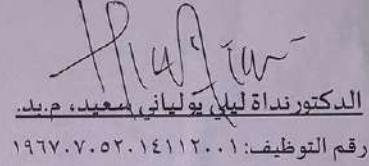 الدكتور نداة ليلي يوليانى سعيد، م.بد.
رقم التوظيف: ١٩٦٧.٧.٥٢.١٤١١٢.٠٠١